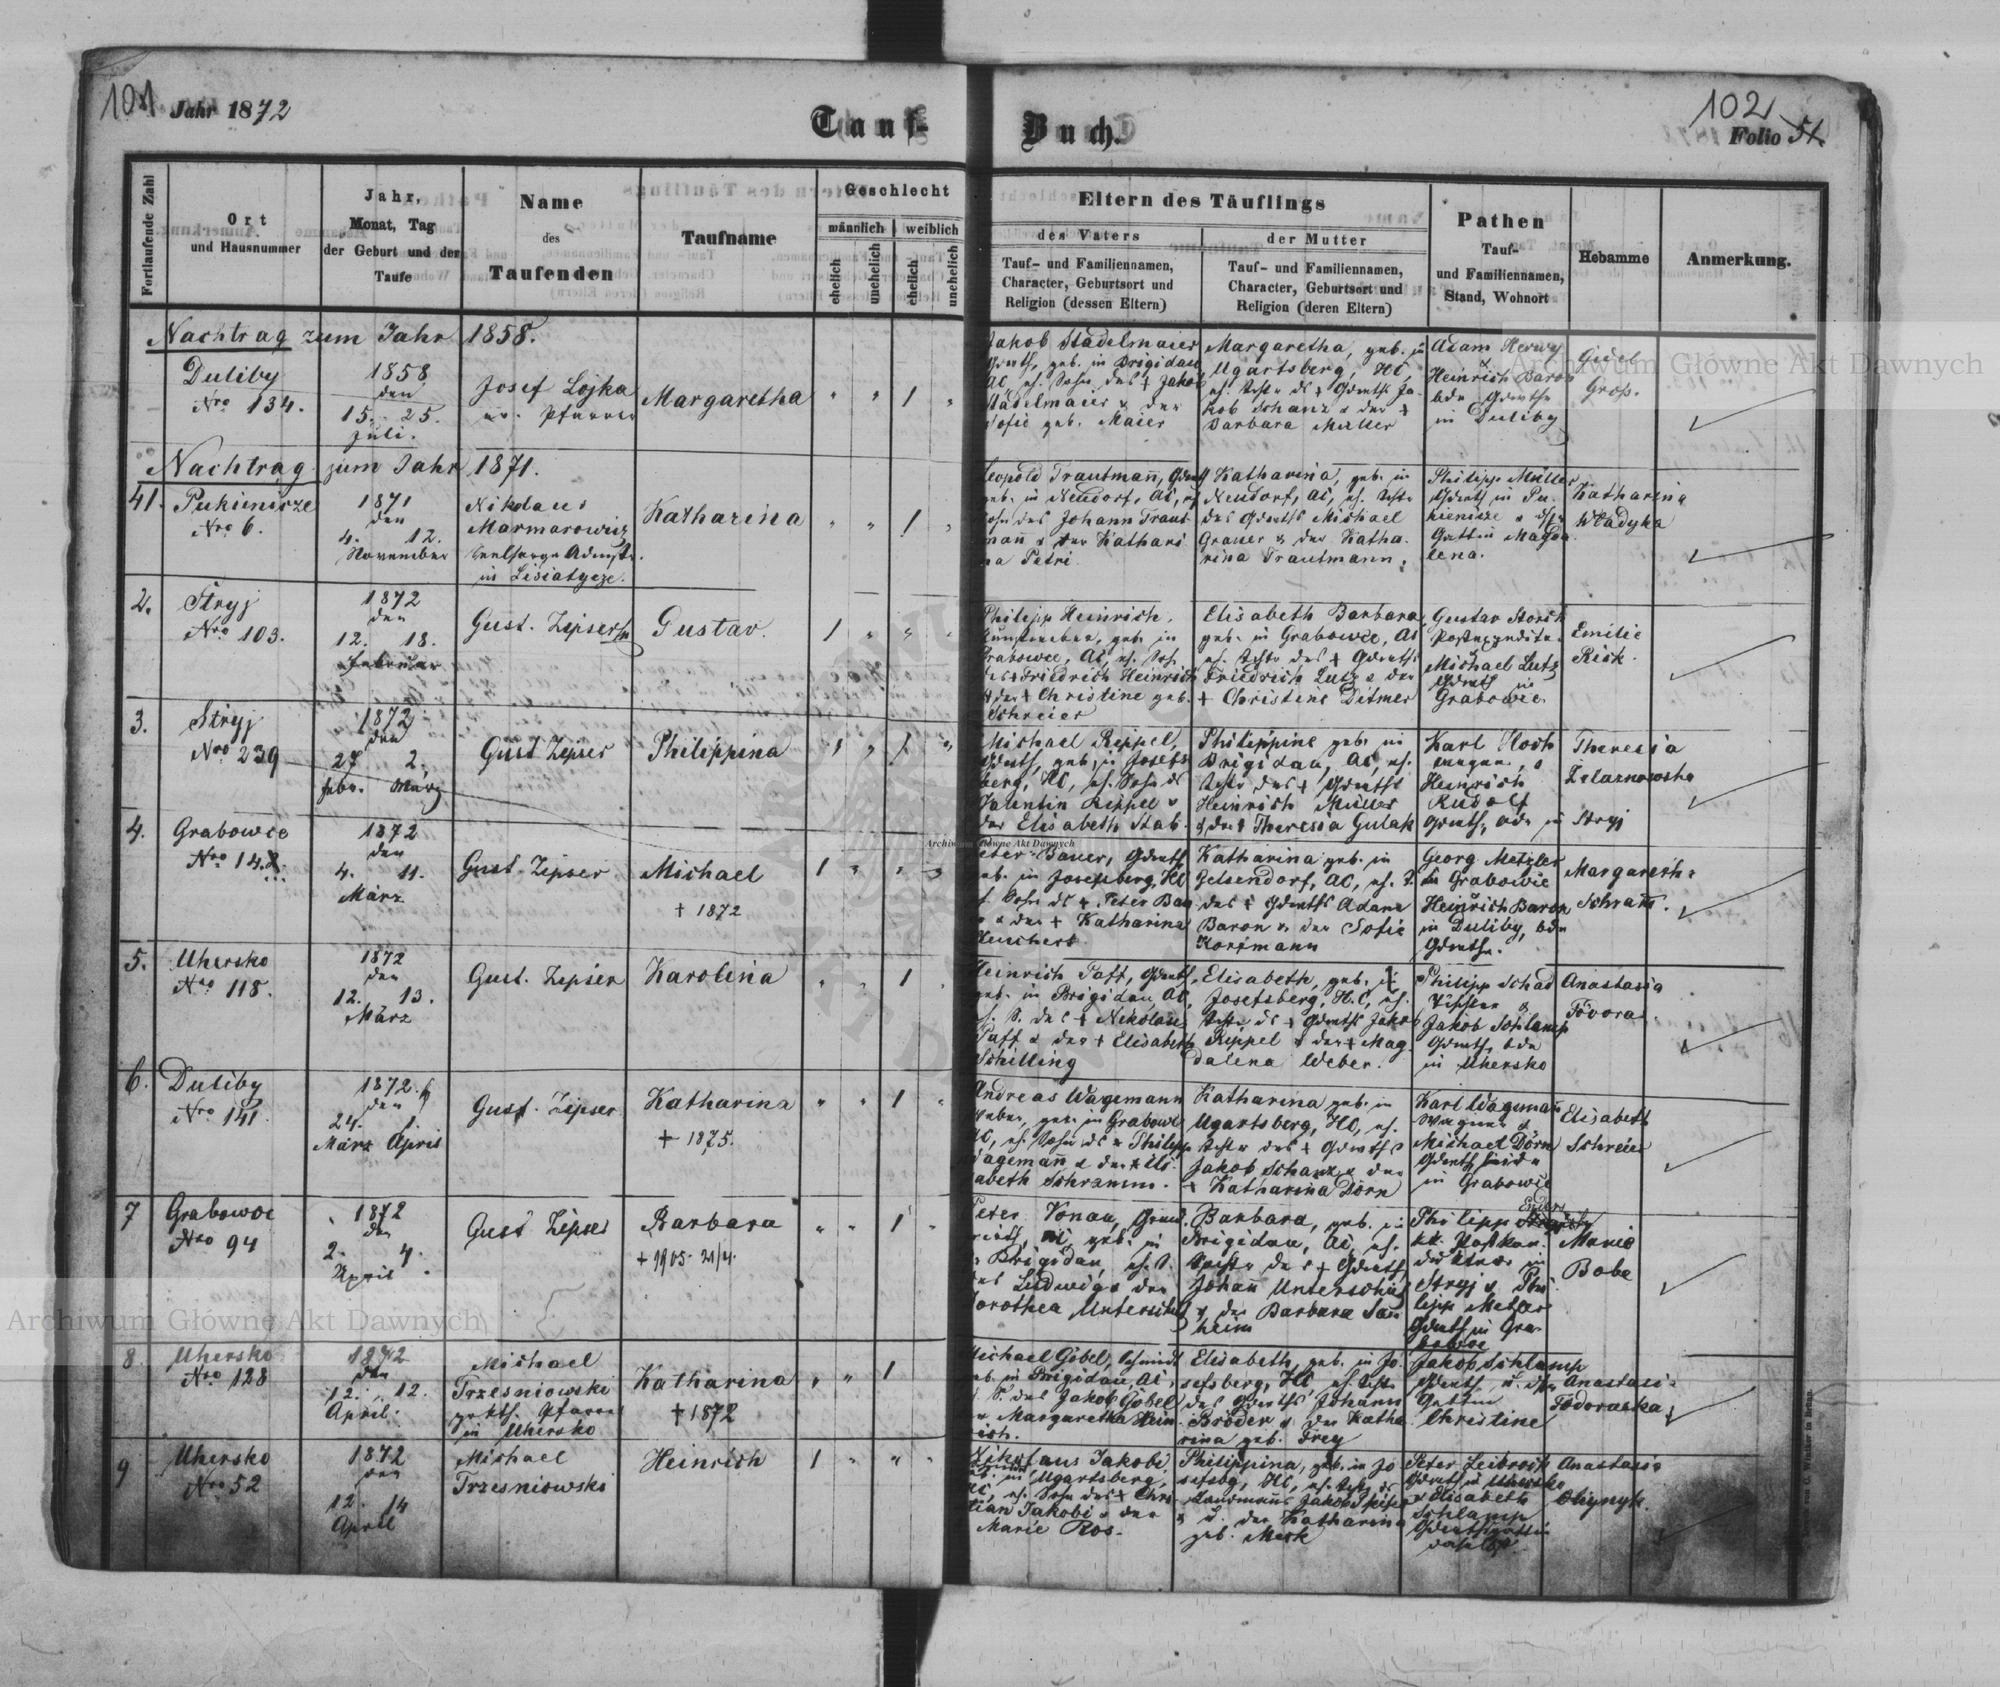 101
Jahr 1872
Tauf-
Buch.
102
Folio 51.
Fortlaufende Zahl
Ort
und Hausnummer
Jahr,
Monat, Tag
der Geburt und der
Taufe
Name
des
Taufenden
Taufname
Geschlecht
männlich
weiblich
ehelich
unehelich
ehelich
unehelich
Eltern des Täuflings
des Vaters
Tauf- und Familiennamen,
Character, Geburtsort und
Religion (dessen Eltern)
der Mutter
Tauf- und Familiennamen,
Character, Geburtsort und
Religion (deren Eltern)
Pathen
Tauf-
und Familiennamen,
Stand, Wohnort
Hebamme
Anmerkung.
Nachtrag zum Jahr 1858.
Duliby
Nro 134.
1858
den
15. 25.
Juli.
Josef Lojka
ev. Pfarrer
Margaretha
" " 1 "
Jakob Stadelmaier
geb. in Brigidau
AC, eh. Sohn des + Jakob
Stadelmaier & der
Sofie geb. Maier
Margaretha, geb. in
Ugartsberg, HC,
kob Schanz & der +
Barbara Müller
Adam Herwy
&
Heinrich Baron
in Duliby
Gidel
Groß.
Nachtrag zum Jahr 1871.
41.
Pukienicze
Nro 6.
1871
den
4. 12.
November
Nikolaus
Marmarowicz
in Lisiatycze.
Katharina
" " 1 "
Leopold Trautmañ,
geb. in Neudorf, AC, eh
Sohn des Johann Traut
mañ & der Kathari
na Petri
Katharina, geb. in
Neudorf, AC, eh. Tchtr
des Gdwths Michael
Grauer & der Katha-
rina Trautmann.
Philipp Müller
Gdwth in Pu-
kienicze &
Gattin Magda
lena.
Katharina
Wladyka
2.
Stryj
Nro 103.
1872
den
12. 18.
Februar
Gust. Zipser
Gustav.
1 " " "
Philipp Heinrich,
geb. in
Grabowce, AC, eh. Soh.
des + Friedrich Heinrich
& der + Christine geb.
Schreier
Elisabeth Barbara
geb. in Grabowce, AC
eh. Tchtr des + Gdwths
Friedrich Lutz & der
+ Christine Ditmer
Gustav Storch
&
Michael Lutz
Gdwth in
Grabowce.
Emilie
Risk.
3.
Stryj
Nro 239
1872
den
27 2.
Febr. März
Gust Zipser
Philippina
" 1 "
Michael Rippel,
Gdwth, geb. in Josefs
berg, HC, eh. Sohn ds
Valentin Rippel &
der Elisabeth Stab.
Philippine geb. in
Brigidau, AC, eh.
Tchtr des + Gdwths
Heinrich Müller
& der + Theresia Gulak
Karl Hoch
Heinrich
Rudolf
Gdwth, bde in Stryj
Theresia
Zelaznowska
4.
Grabowce
1872
den
4. 11.
März
Gust. Zipser
Michael
+ 1872
1 " " "
Peter Bauer, Gdwth
geb. in Josefsberg, HC
eh. Sohn ds + Peter Bau
er & der + Katharina
Katharina geb. in
Gelsendorf, AC, eh. T.
des + Gdwths Adam
Baron & der Sofie
Korfmann
Georg Metzler
in Grabowce
&
Heinrich Baron
in Duliby, bde
Gdwthe.
5.
Uhersko
Nro 118.
1872
den
12. 13.
März
Gust. Zipser
Karolina
" " 1 "
Heinrich Paff, Gdwth,
geb. in Brigidau, AC,
eh. S. des + Nikolaus
Paff & der + Elisabeth
Schilling
Elisabeth, geb. in
Josefsberg, H.C, eh.
Tchtr ds + Gdwths Jakob
Rippel & der + Mag-
dalena Weber.
Philipp Schad
Tischler &
Jakob Schlamp
Gdwth, bde
in Uhersko
Anastasia
6.
Duliby
Nro 141.
1872.
den
24. 1
März April
Gust. Zipser
Katharina
+ 1875.
" " 1 "
Andreas Wagemann
Weber, geb. in Grabowc
AC, eh. Sohn ds + Philipp
Wagemañ & der + Elis
abeth Schramm.
Katharina geb. in
Ugartsberg, HC, eh.
Tchtr des + Gdwths
Jakob Schanz & der
+ Katharina Dörn
Karl Wagemañ
Wagner &
Michael Dörn
Gdwth beide
in Grabowce
Elisabeth
Schreier
7
Grabowce
Nro 94
1872
den
2. 7.
April.
Gust Zipser
Barbara
+ 1905 21/4.
" " 1 "
Peter Vonau, Grund
wirth, AC, geb. in
Brigidau, eh. S.
des Ludwigs & der
Dorothea Unterschütz
Barbara, geb. in
Brigidau, AC, eh.
Tochtr des + Gdwths
Johañ Unterschütz
& der Barbara Sau
heim
Philipp
Stryj & Phi
lipp Metzler
Gdwth in Gra-
bowce
Marie
Bobe
8
Uhersko
Nro 128
1872
den
12. 12.
April.
Michael
Trzesniowski
in Uhersko
Katharina
+ 1872
" " 1
Michael Göbel, Schmidt
geb. in Brigidau AC,
S. des Jakob Göbel
& Margaretha Hein
rich.
Elisabeth, geb. in Jo
sefsberg, HC, eh. Tchtr
des Gdwths Johann
Bröder & der Katha
rina geb. Frey
Jakob Schlamp
Gdwth
Gattin
Christine
Anastasia
9
Uhersko
Nro 52
1872
den
12. 14
April
Michael
Trzesniowski
Heinrich
1 " " "
Nikolaus Jakobi,
geb. in Ugartsberg,
HC, eh. Sohn des + Chri
stian Jakobi & der
Marie Ros.
Philippina, geb. in Jo
sefsbg, HC, eh. Tchtr ds
& d. der Katharina
geb. Merk
Peter Leibrock
Gdwth in Uhersko
& Elisabeth
Schlamp
Anastasia
Oliynyk.
Archiwum Główne Akt Dawnych
Archiwum Główne Akt Dawnych
Archiwum Główne Akt Dawnych